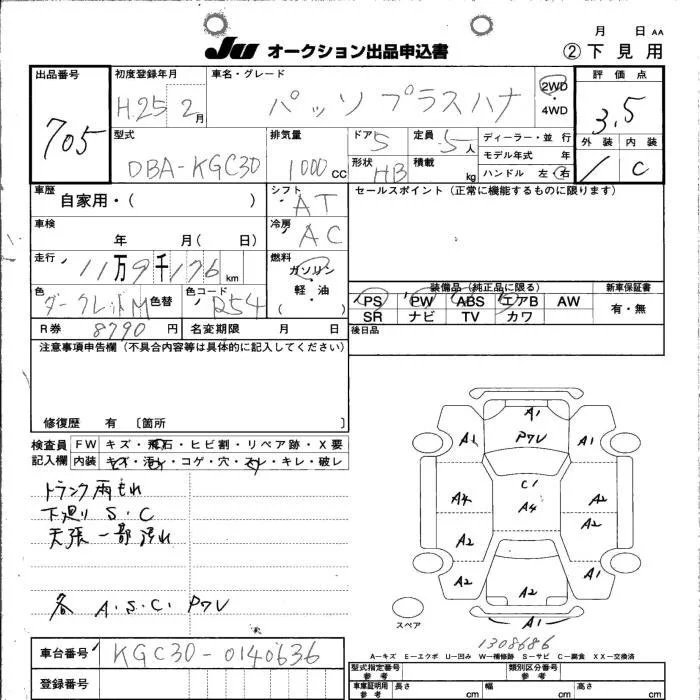 月 日 AA
JU オークション出品申込書 ②下見用
出品番号 705
初度登録年月 H.25 2月
車名・グレード パッソ プラスハナ
2WD
4WD
評価点 3.5
型式 DBA-KGC30
排気量 1000 CC
ドア 5
定員 5人
形状 HB
積載 kg
ディーラー・並行
モデル年式 年
ハンドル 左・右
外装 内装 C
車歴 自家用・( )
シフト AT
セールスポイント(正常に機能するものに限ります)
車検 年 月( 日)
冷房 AC
走行 11万9千176 km
燃料 ガソリン
軽・油
( )
色 ダークレッドM
色替
色コード R54
装備品(純正品に限る) 新車保証書
PS PW ABS エアB AW 有・無
SR ナビ TV カワ
R券 8790円 名変期限 月 日
後日品
注意事項申告欄(不具合内容等は具体的に記入してください)
修復歴 有 〔箇所 〕
検査員記入欄
FW キズ・飛石・ヒビ割・リペア跡・X要
内装 キズ・汚レ・コゲ・穴・スレ・キレ・破レ
トランク雨もれ
下廻り S.C
天張一部
各 A.S.C. P7U
A1
A1 P7U A1
C1
A4 A4 A2
A2 A2
A2 A2 A1
A1
スペア
1308686
A-キズ E-エクボ U-凹み W-補修跡 S-サビ C-腐食 XX-交換済
車台番号 KGC30-0140636
登録番号
型式指定番号 参考
類別区分番号 参考
車庫証明用 参考 長さ cm 幅 cm 高さ cm